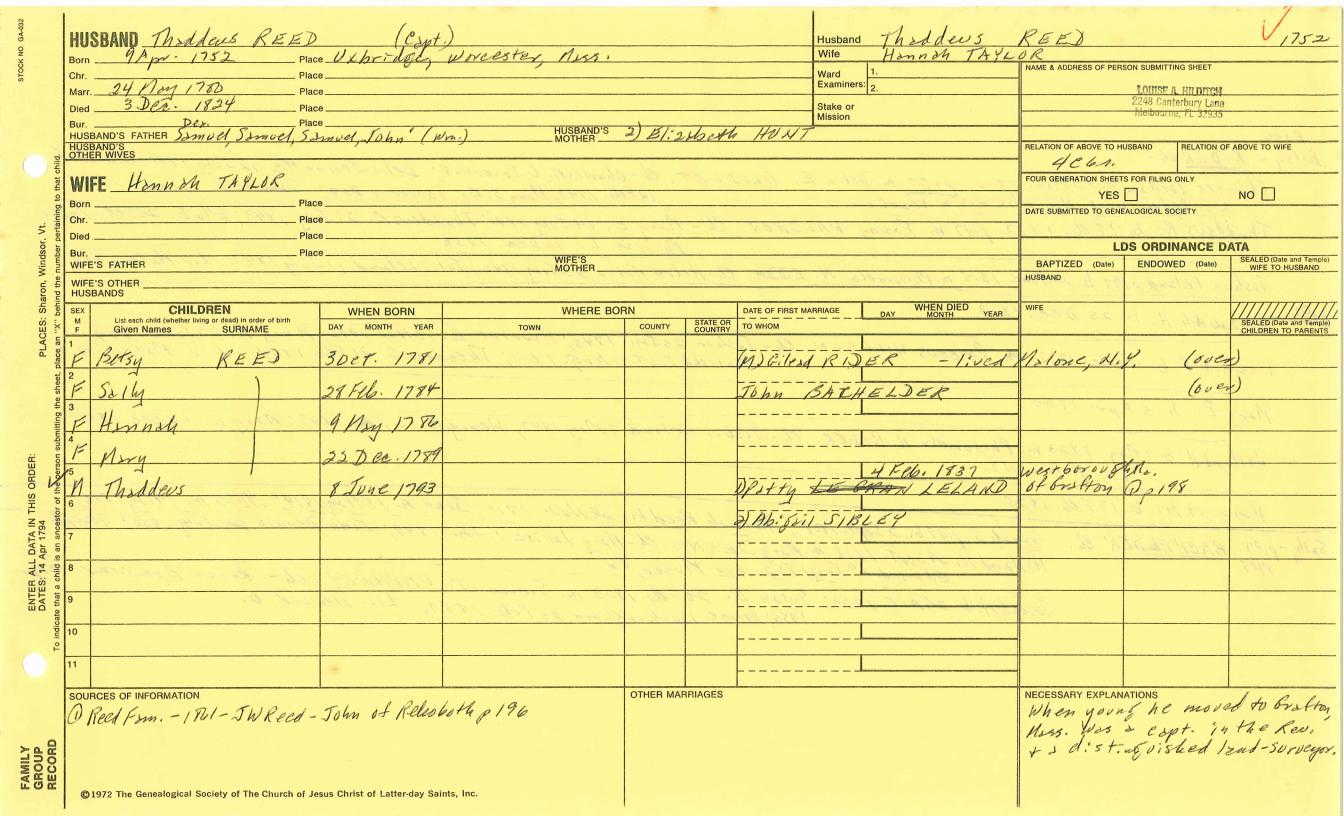 STOCK NO. GA-032
HUSBAND Thaddeus REED (Capt.)
Born 9 Apr. 1752 Place Uxbridge, Worcester, Mass.
Chr. Place
Marr. 24 May 1780 Place
Died 3 Dec. 1824 Place
Bur. Place
HUSBAND'S FATHER Dea. Samuel, Samuel, Samuel, John' (Wm.) HUSBAND'S MOTHER 2) Elizabeth HUNT
HUSBAND'S OTHER WIVES
WIFE Hannah TAYLOR
Born Place
Chr. Place
Died Place
Bur. Place
WIFE'S FATHER WIFE'S MOTHER
WIFE'S OTHER HUSBANDS
Husband Thaddeus REED 1752
Wife Hannah TAYLOR
Ward Examiners: 1.
2.
Stake or Mission
NAME & ADDRESS OF PERSON SUBMITTING SHEET
LOUISE A. HILDITCH
2248 Canterbury Lane
Melbourne, FL 32935
RELATION OF ABOVE TO HUSBAND RELATION OF ABOVE TO WIFE
FOUR GENERATION SHEETS FOR FILING ONLY
YES NO
DATE SUBMITTED TO GENEALOGICAL SOCIETY
LDS ORDINANCE DATA
BAPTIZED (Date) ENDOWED (Date) SEALED (Date and Temple) WIFE TO HUSBAND
HUSBAND
WIFE
SEALED (Date and Temple) CHILDREN TO PARENTS
SEX M F
CHILDREN
List each child (whether living or dead) in order of birth
Given Names SURNAME
WHEN BORN
DAY MONTH YEAR
WHERE BORN
TOWN COUNTY STATE OR COUNTRY
DATE OF FIRST MARRIAGE
TO WHOM
WHEN DIED
DAY MONTH YEAR
1 F Betsy REED 3 Oct. 1781 (M) Eilead RIDER - lived Malone, N.Y. (over)
2 F Sally 28 Feb. 1784 John BACHELDER (over)
3 F Hannah 9 May 1786
4 F Mary 22 Dec. 1789
5 M Thaddeus 8 June 1793 4 Feb. 1837 Westborough Ma.
1) Patty LELAND of Grafton ① p 198
6 2) Abigail SIBLEY
7
8
9
10
11
SOURCES OF INFORMATION
① Reed Fam. - 1861 - JW Reed - John of Rehoboth p 196
OTHER MARRIAGES
NECESSARY EXPLANATIONS
When young he moved to Grafton,
Mass. Was a capt. in the Rev.
+ a distinguished land-surveyor.
©1972 The Genealogical Society of The Church of Jesus Christ of Latter-day Saints, Inc.
FAMILY GROUP RECORD
ENTER ALL DATA IN THIS ORDER:
DATES: 14 Apr 1794
PLACES: Sharon, Windsor, Vt.
To indicate that a child is an ancestor of the person submitting the sheet, place an "X" behind the number pertaining to that child.